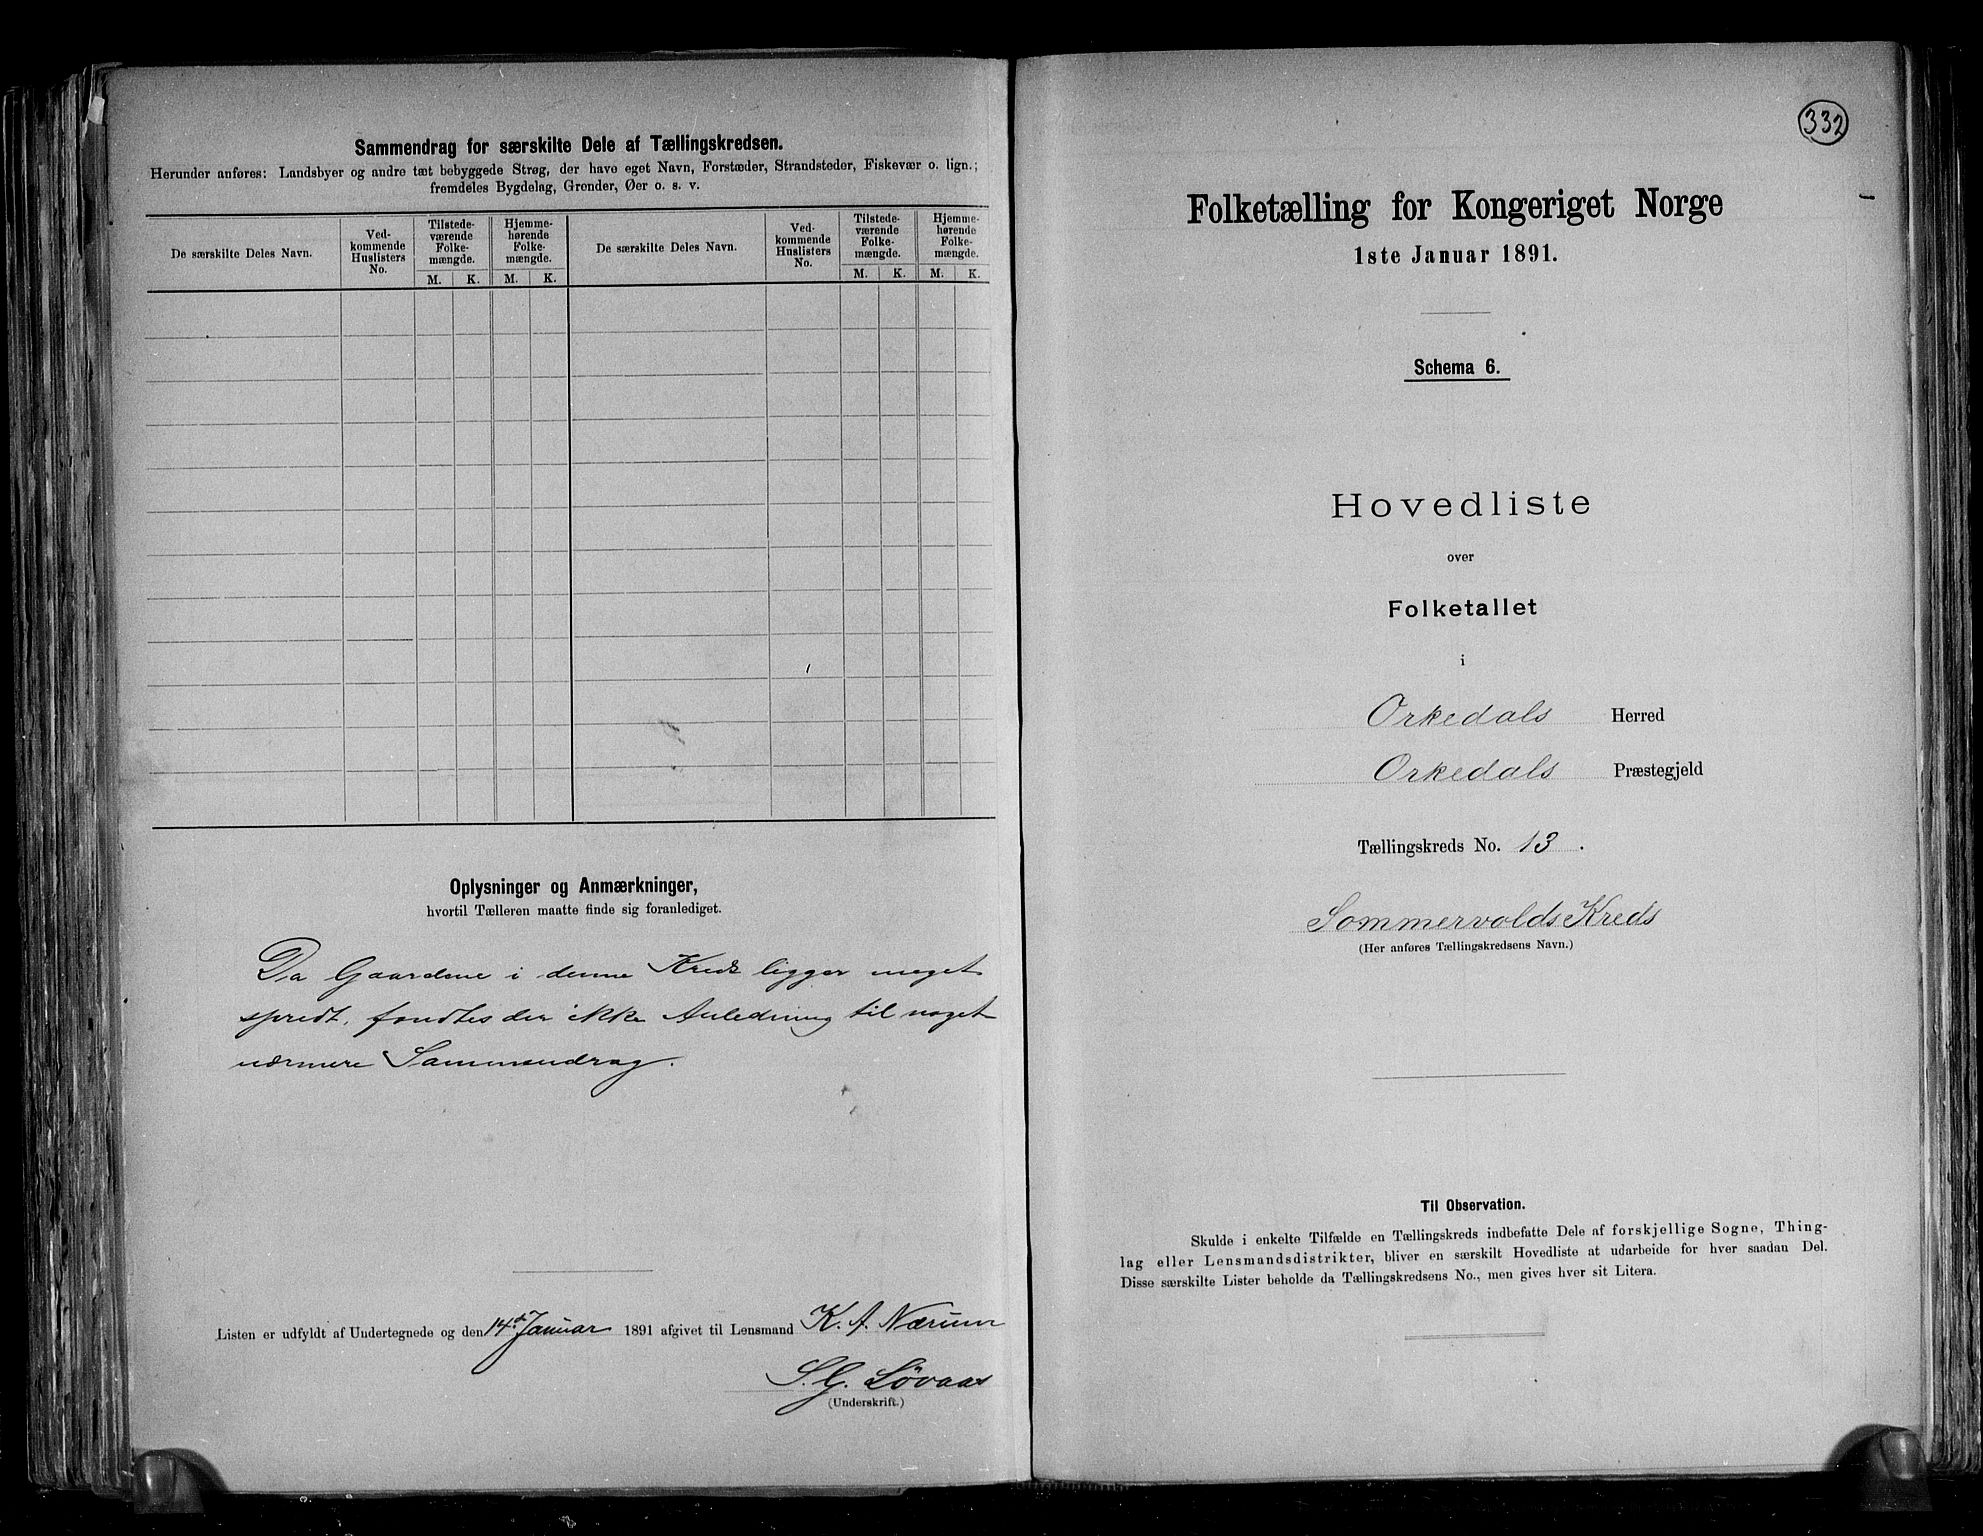 Sammendrag for særskilte Dele af Tællingskredsen.
Herunder anføres: Landsbyer og andre tæt bebyggede Strøg, der have eget Navn, Forstæder, Strandsteder, Fiskevær o. lign.;
fremdeles Bygdelag, Grender, Øer o. s. v.
De særskilte Deles Navn.
Ved-
kommende
Huslisters
No.
Tilstede-
værende
Folke-
mængde.
Hjemme-
hørende
Folke-
mængde.
M. K. M. K.
De særskilte Deles Navn.
Ved-
kommende
Huslisters
No.
Tilstede-
værende
Folke-
mængde.
Hjemme-
hørende
Folke-
mængde.
M. K. M. K.
Oplysninger og Anmærkninger,
hvortil Tælleren maatte finde sig foranlediget.
Da Gaardene i denne Kreds ligger meget
spredt, fandtes der ikke Anledning til noget
nærmere Sammendrag.
Listen er udfyldt af Undertegnede og den 14de Januar 1891 afgivet til Lensmand K. A. Nærum
S. G. Løvaas
(Underskrift.)
332
Folketælling for Kongeriget Norge
1ste Januar 1891.
Schema 6.
Hovedliste
over
Folketallet
i
Orkedals Herred
Orkedals Præstegjeld
Tællingskreds No. 13.
Sommervolds Kreds
(Her anføres Tællingskredsens Navn.)
Til Observation.
Skulde i enkelte Tilfælde en Tællingskreds indbefatte Dele af forskjellige Sogne, Thing-
lag eller Lensmandsdistrikter, bliver en særskilt Hovedliste at udarbeide for hver saadan Del.
Disse særskilte Lister beholde da Tællingskredsens No., men gives hver sit Litera.